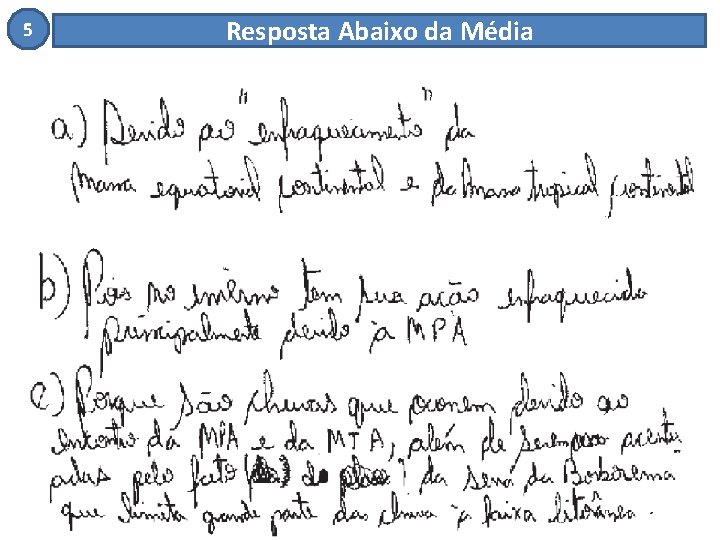 5
Resposta Abaixo da Média
a) Devido ao "enfraquecimento" da
massa equatorial continental e da massa tropical continental
b) Pois no inverno tem sua ação enfraquecida
principalmente devido à MPA
c) Porque são chuvas que ocorrem devido ao
encontro da MPA e da MTA, além de serem acentu
adas pelo fato da serra da Borborema
que limita grande parte das chuva à faixa litorânea.